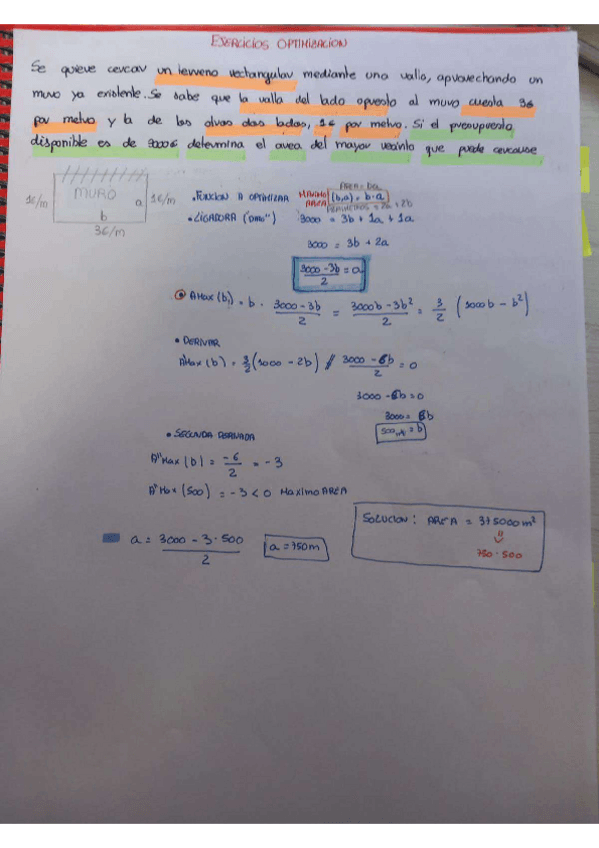 EJERCICIOS OPTIMIZACION
Se quiere cercar un terreno rectangular mediante una valla, aprovechando un
muro ya existente. Se sabe que la valla del lado opuesto al muro cuesta 3€
por metro y la de los otros dos lados, 1€ por metro. Si el presupuesto
disponible es de 3000€ determina el area del mayor recinto que puede cercarse
MURO
1€/m a 1€/m
b
3€/m
AREA = b·a
• FUNCION A OPTIMIZAR MAXIMO AREA (b,a) = b·a
PERIMETROS = 2a + 2b
• LIGADORA 3000 = 3b + 1a + 1a
3000 = 3b + 2a
3000 - 3b / 2 = a
AMax (b) = b · 3000 - 3b / 2 = 3000b - 3b² / 2 = 3/2 (1000b - b²)
• DERIVAR
A'Max (b) = 3/2 (1000 - 2b) // 3000 - 6b / 2 = 0
3000 - 6b = 0
3000 = 6b
500 m = b
• SEGUNDA DERIVADA
A''Max (b) = -6 / 2 = -3
A''Max (500) = -3 < 0 MAXIMO AREA
a = 3000 - 3·500 / 2 a = 750m
SOLUCION: AREA = 375000 m²
750·500